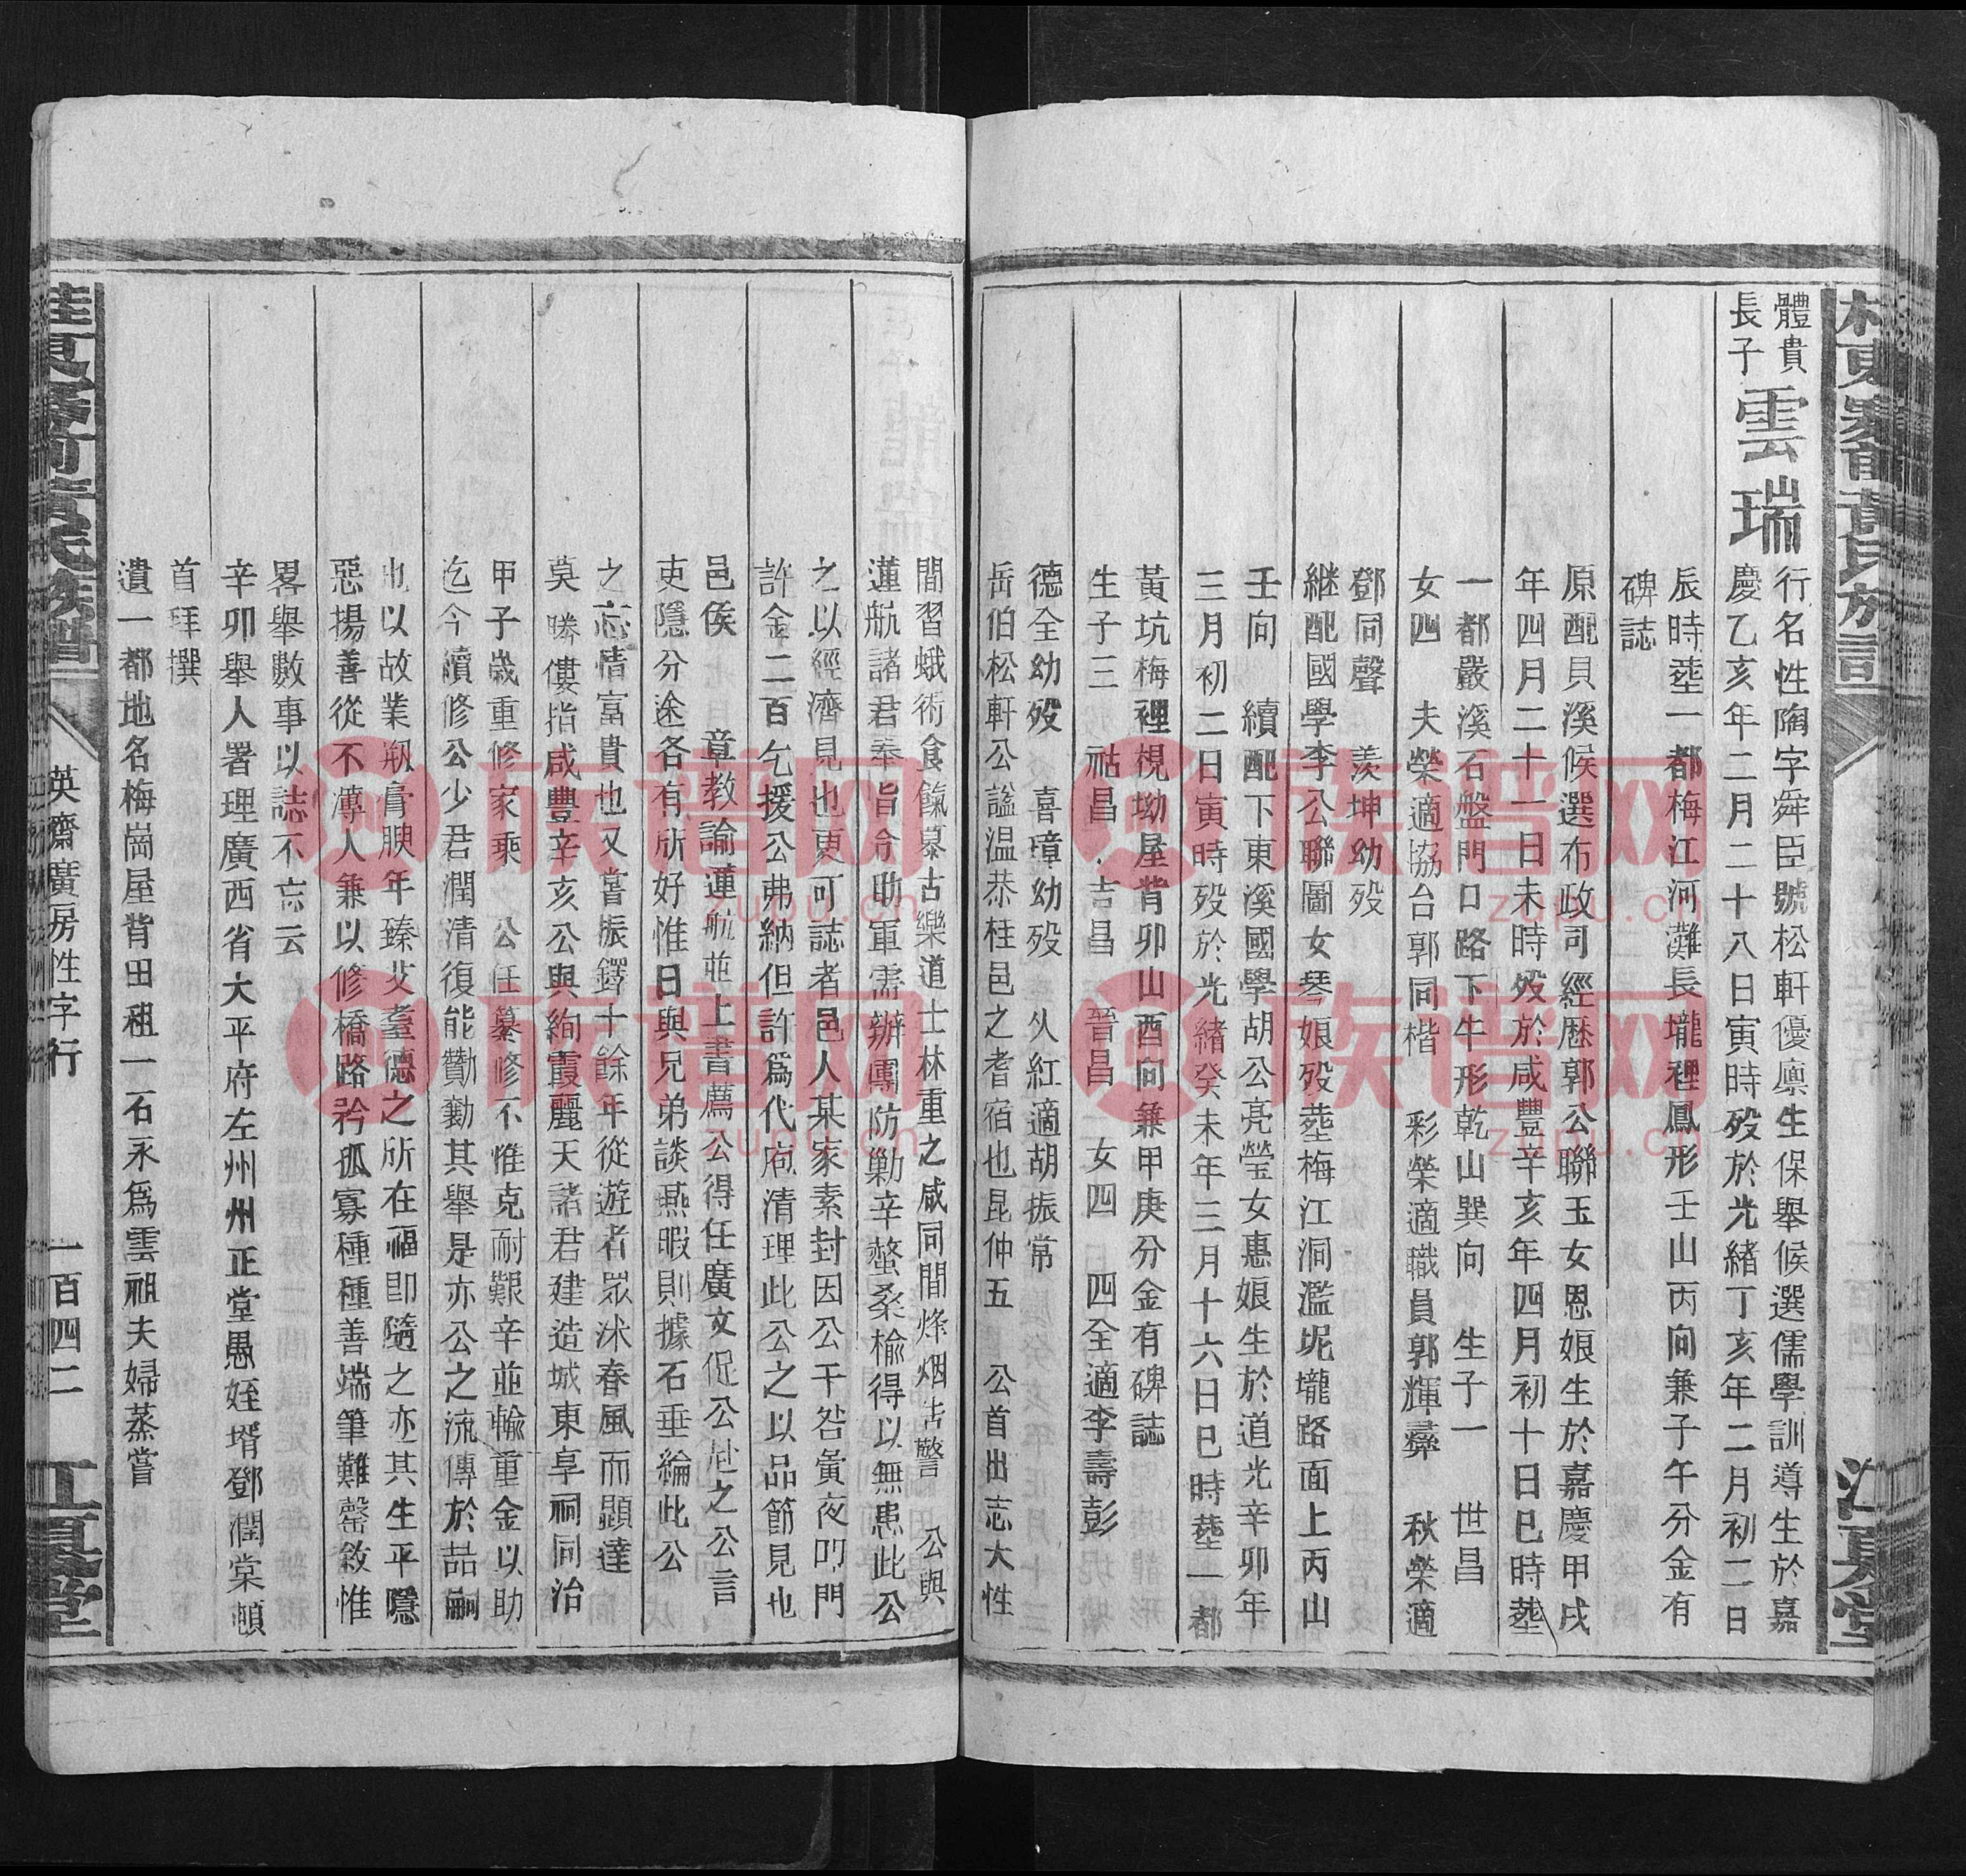 體貴
長子
雲瑞
行名性陶字舜臣號松軒優廩生保舉候選儒學訓導生於嘉
慶乙亥年二月二十八日寅時歿於光緒丁亥年二月初二日
辰時塟一都梅江河灘長壠裡鳳形壬山丙向兼子午分金有
碑誌
原配貝溪候選布政司經歷郭公聯玉女恩娘生於嘉慶甲戌
年四月二十一日未時歿於咸豐辛亥年四月初十日巳時塟
一都嚴溪石盤門口路下牛形乾山巽向 生子一 世昌
女四 夫榮適協台郭同楷 彩榮適職員郭輝彝 秋榮適
鄧同聲 羨坤幼歿
継配國學李公聯圖女琴娘歿塟梅江洞濫坭壠路面上丙山
壬向 續配下東溪國學胡公亮瑩女惠娘生於道光辛卯年
三月初二日寅時歿於光緒癸未年三月十六日巳時塟一都
黃坑梅裡梘坳屋背卯山酉向兼甲庚分金有碑誌
生子三 祜昌 吉昌 晉昌 女四 四全適李壽彭
德全幼歿 喜璋幼歿 久紅適胡振常
岳伯松軒公謚温恭桂邑之耆宿也昆仲五 公首出志大性
間習蛾術食餼慕古樂道士林重之咸同間烽烟告警 公與
蓮航諸君奉旨令助軍需辦團防勦辛螯桑榆得以無患此公
之以經濟見也更可誌者邑人某家素封因公干咎黃夜叩門
許金二百乞援公弗納但許爲代庖清理此公之以品節見也
邑侯 章教諭蓮航並上書薦公得任廣文促公赴之公言
吏隱分途各有所好惟日與兄弟談燕暇則據石垂綸此公
之忘情富貴也又嘗振鐸十餘年從遊者眾沭春風而顯達
莫勝僂指咸豐辛亥公與絢霞麗天諸君建造城東阜祠同治
甲子歲重修家乘 公任纂修不惟克耐艱辛並輸重金以助
迄今續修公少君潤清復能勷勷其舉是亦公之流傳於喆嗣
也以故業剏膏腴年臻艾耋德之所在福即隨之亦其生平隱
惡揚善從不薄人兼以修橋路矜孤寡種種善端筆難罄敘惟
畧舉數事以誌不忘云
辛卯舉人署理廣西省大平府左州州正堂愚姪壻鄧潤棠頓
首拜撰
遺一都地名梅崗屋背田租一石永爲雲祖夫婦蒸嘗
英齋廣房性字行 一百四二
江夏堂